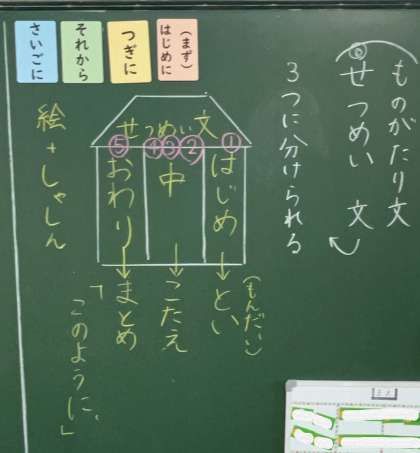 ものがたり文
⓪
せつめい 文
3つに分けられる
(まず)
はじめに
つぎに
それから
さいごに
せつめい文
①はじめ→とい
(もんだい)
②③④中→こたえ
⑤おわり→まとめ
「このように、」
絵+しゃしん